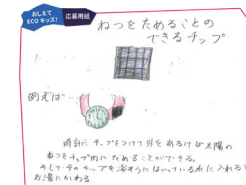 おしえて
ECOキッズ!
応募用紙
ねつをためることの
できるチップ
例えば
時計にチップをつけて外をあるけば太陽の
ねつをチップ内にためることができる。
そしてそのチップを浴そうにはいっている水に入れると
お湯にかわる